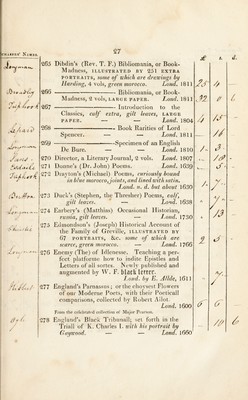 27
265 Dibdin's (Rev. T. F.) Bibliomania, or Book-
Madness, ILLUSTRATED BY 251 EXTRA
PORTRAITS, some of which are drawings by
Harding, 4 vols, green morocco. Lond. 1811
266 ——— Bibliomania, or Book-
Madness, 2 vols, LARGE PAPER. Lond. 1811
267 ——— Introduction to the
Classics, calf extra, gilt leaves, LARGE
PAPER. — — Lond. 1804
268 ——— Book Rarities of Lord
Spencer. — — Lond. 1811
269 ——— Specimen of an English
De Bure. — — Lond. 1810
270 Director, a Literary Journal, 2 vols. Lond. 1807
271 Donne's (Dr. John) Poems. Lond. 1639
272 Drayton's (Michael) Poems, curiously bound
in blue morocco, joints, and lined with satin.
Lond. n. d. but about 1630
273 Duck's (Stephen, the Thresher) Poems, calf,
gilt leaves. — — Lond. 1738
274 Earbery's (Matthias) Occasional Historian,
russia, gilt leaves. — Lond. 1730
275 Edmundson's (Joseph) Historical Account of
the Family of Greville, ILLUSTRATED BY
67 PORTRAITS, &c. some of which are
rare, green morocco. — Lond. 1766
276 Enemy (The) of Idlenesse, Teaching a per-
fect platforme how to indite Epistles and
Letters of all sortes. Newly published and
augmented by W. F. black letter.
Lond. by E. Allde, 1611
277 England's Parnassus; or the choysest Flowers
of our Moderne Poets, with their Poeticall
comparisons, collected by Robert Allot
Lond. 1600
From the celebrated collection of Major Pearson.
278 England's Black Tribunall; set forth in the
Triall of K. Charles I. with his portrait by
Gaywood. — — Lond. 1660